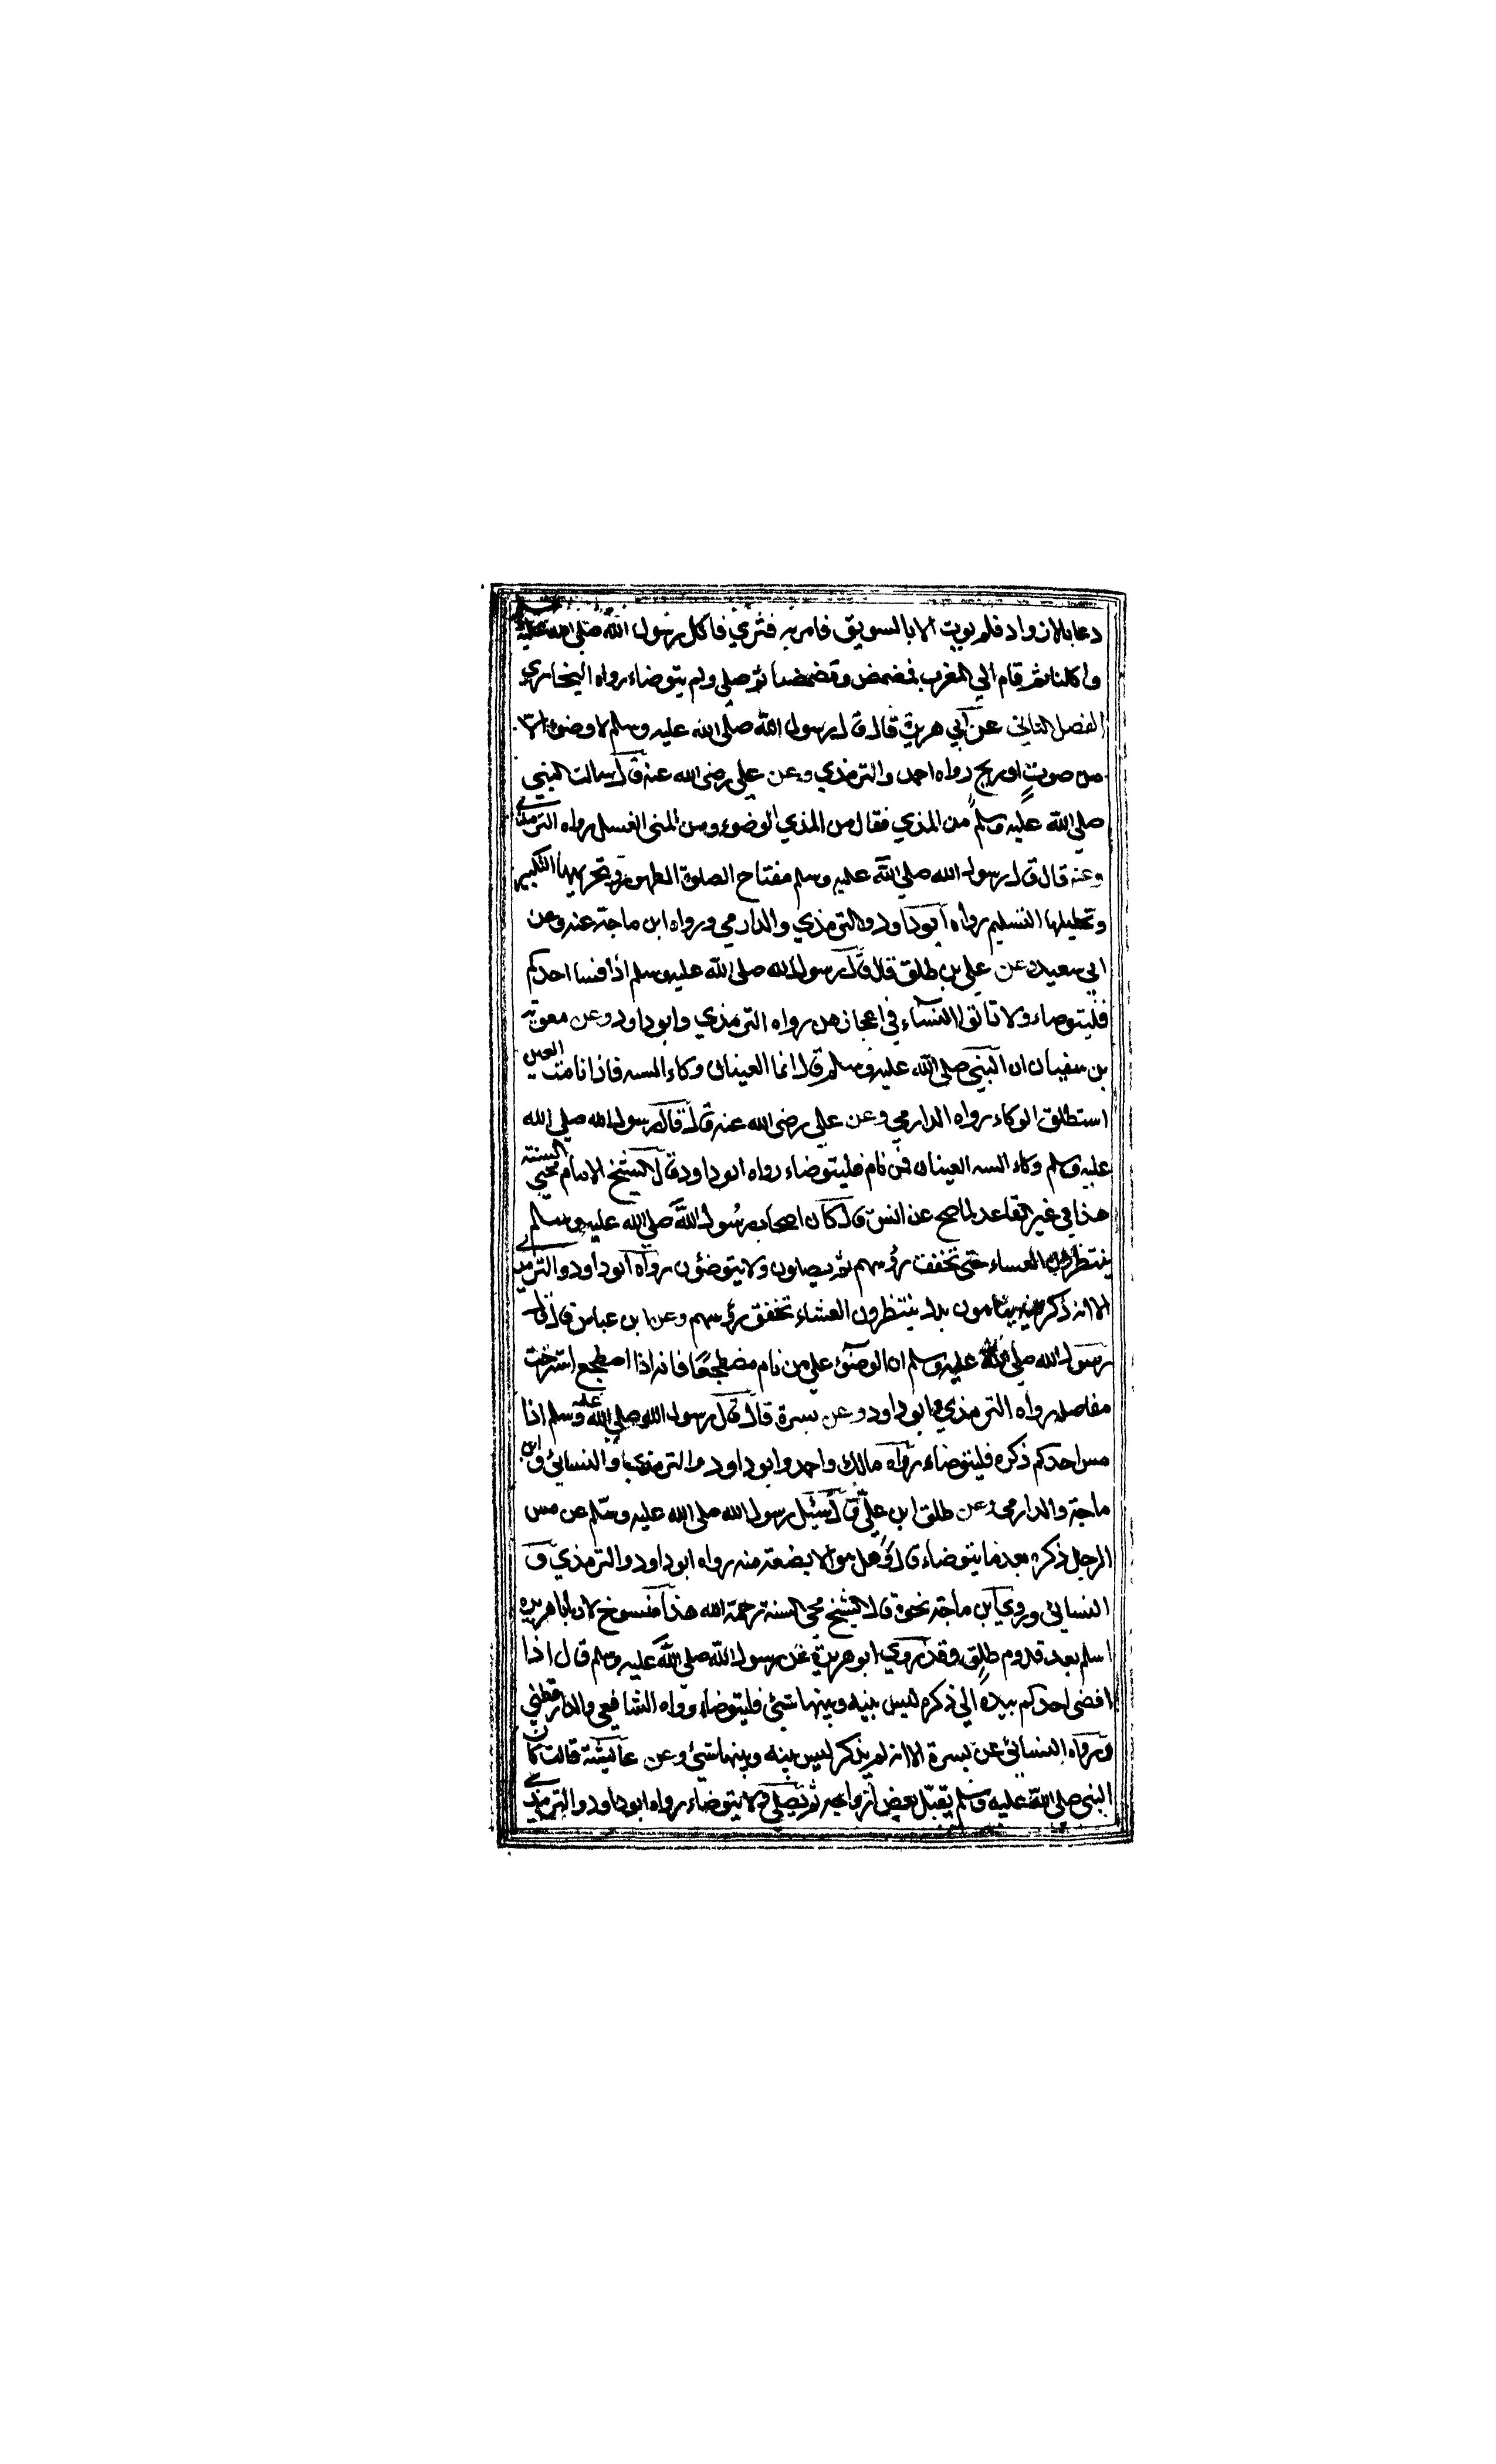 دعا بالازواد فلم يوت الا بالسويق فامر به فثري فاكل رسول الله صلى الله عليه وسلم
واكلنا ثم قام الي المغرب فمضمض ومضمضنا ثم صلي ولم يتوضاء رواه البخاري
الفصل الثاني عن ابي هريرة قال قال رسول الله صلي الله عليه وسلم لا وضوء الا
من صوت او ريح رواه احمد والترمذي وعن علي رضي الله عنه قال سالت النبي
صلي الله عليه وسلم من المذي فقال من المذي الوضوء ومن المني الغسل رواه الترمذي
وعنه قال قال رسول الله صلي الله عليه وسلم مفتاح الصلوة الطهور وتحريمها التكبير
وتحليلها التسليم رواه ابو داود والترمذي والدارمي ورواه ابن ماجة عنه وعن
ابي سعيد وعن علي بن طلق قال قال رسول الله صلي الله عليه وسلم اذا فسا احدكم
فليتوضاء ولا تاتوا النساء في اعجازهن رواه الترمذي وابو داود وعن معوية
بن سفيان ان النبي صلي الله عليه وسلم قال انما العينان وكاء السه فاذا نامت العين
استطلق الوكاء رواه الدارمي وعن علي رضي الله عنه قال قال رسول الله صلي الله
عليه وسلم وكاء السه العينان فمن نام فليتوضاء رواه ابو داود قال الشيخ الامام محيي السنة
هذا في غير القاعد لما صح عن انس قال كان اصحاب رسول الله صلي الله عليه وسلم
ينتظرون العشاء حتي تخفف رؤسهم ثم يصلون ولا يتوضؤن رواه ابو داود والترمذي
الا انه ذكر فيه ينامون بدل ينتظرون العشاء تخفق رؤسهم وعن ابن عباس قال قال
رسول الله صلي الله عليه وسلم ان الوضوء علي من نام مضطجعا فانه اذا اضطجع استرخت
مفاصله رواه الترمذي وابو داود وعن بسرة قال قال رسول الله صلي الله عليه وسلم اذا
مس احدكم ذكره فليتوضاء رواه مالك واحمد وابو داود والترمذي والنسائي وابن
ماجة والدارمي وعن طلق ابن علي قال سئيل رسول الله صلي الله عليه وسلم عن مس
الرجل ذكره بعد ما يتوضاء قال وهل هو الا بضعة منه رواه ابو داود والترمذي و
النسائي وروي ابن ماجة نحوه قال الشيخ محي السنة رحمة الله هذا منسوخ لان ابا هريرة
اسلم بعد قدوم طلق وقد روي ابو هريرة عن رسول الله صلي الله عليه وسلم قال اذا
افضي احدكم بيده الي ذكره ليس بينه وبينها شئ فليتوضاء رواه الشافعي والدارقطني
ورواه النسائي عن بسرة الا انه لم يذكر ليس بينه وبينها شئ وعن عايشة قالت كان
النبي صلي الله عليه وسلم يقبل بعض ازواجه ثم يصلي ولا يتوضاء رواه ابو داود والترمذي